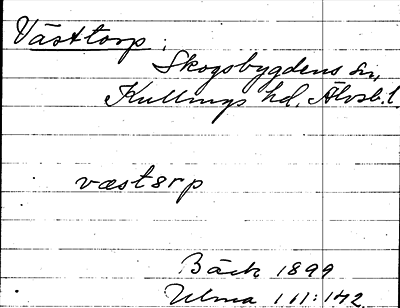 Västtorp.
Skogsbygdens sn,
Kullings hd. Älvsb. l.
væstərp
Bäck 1899
Ulma 111:142